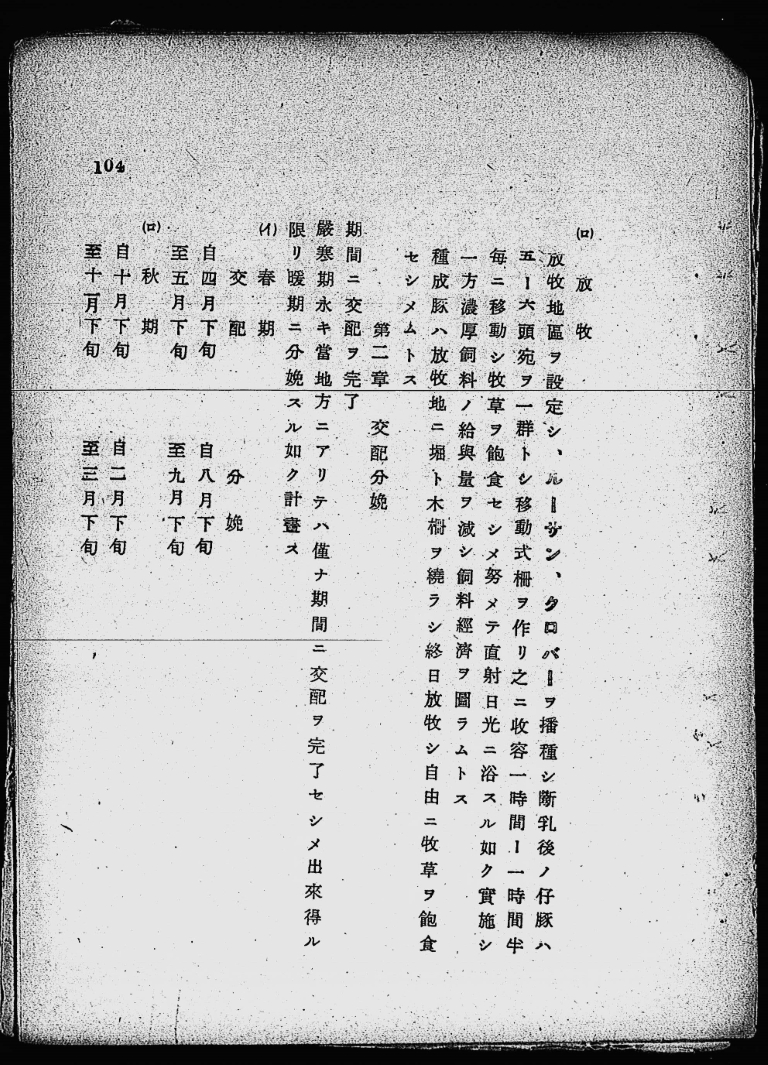 104
(ロ) 放牧
放牧地區ヲ設定シ、ルーサン、クローバーヲ播種シ斷乳後ノ仔豚ハ
五ー六頭宛ヲ一群トシ移動式柵ヲ作リ之ニ收容一時間ー一時間半
每ニ移動シ牧草ヲ飽食セシメ努メテ直射日光ニ浴スル如ク實施シ
一方濃厚飼料ノ給與量ヲ減シ飼料經濟ヲ圖ラムトス
種成豚ハ放牧地ニ堀ト木柵ヲ繞ラシ終日放牧シ自由ニ牧草ヲ飽食
セシメムトス
第二章 交配分娩
期間ニ交配ヲ完了
嚴寒期永キ當地方ニアリテハ僅ナ期間ニ交配ヲ完了セシメ出來得ル
限リ暖期ニ分娩スル如ク計畫ス
(イ) 春期
交配 分娩
自四月下旬 自八月下旬
至五月下旬 至九月下旬
(ロ) 秋期
自十月下旬 自二月下旬
至十一月下旬 至三月下旬